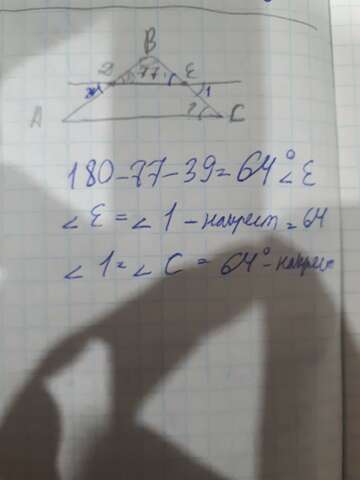 B
D 77 E
1
A ? C
180-77-39=64° ∠E
∠E = ∠1 - накрест = 64
∠1 = ∠C = 64° - накрест